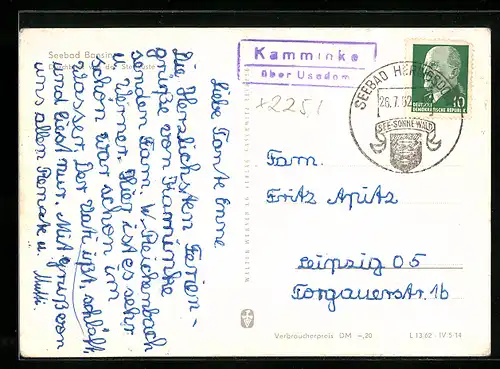 Seebad Bansin
Kamminke
über Usedom
+2251
SEEBAD HERINGSDORF
26.7.62
SEE-SONNE-WALD
DEUTSCHE
DEMOKRATISCHE REPUBLIK
10
Liebe Tante Emme
Die Herzlichsten Ferien-
grüße von Kamminke
senden Fam. W. Reichenbach
u. Werner. Hier ist es sehr
schön war schon im
Wasser. Der Vati ißt, schläft,
und liest nur. Mit grüße von
uns allen Renate u. Mutti.
Fam.
Fritz Apitz
Leipzig O5
Torgauerstr. 1b
Verbraucherpreis DM -,20
L 13 62 · IV 5 14